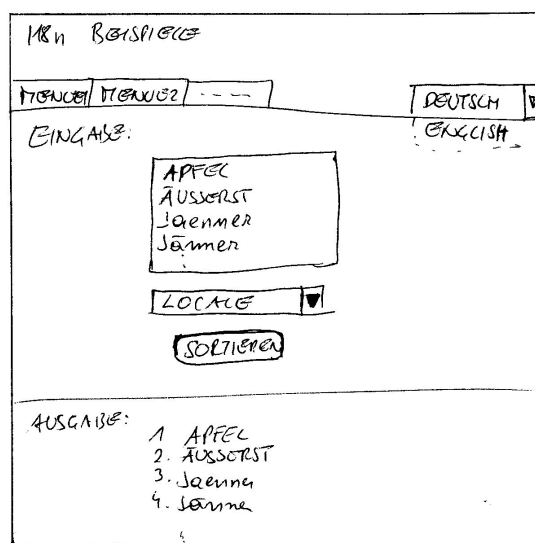 I18n BEISPIELE
MENUE1 MENUE2 ----
DEUTSCH
ENGLISH
EINGABE:
APFEL
ÄUSSERST
Jaenner
Jänner
LOCALE
SORTIEREN
AUSGABE:
1 APFEL
2. ÄUSSERST
3. Jaenner
4. Jänner